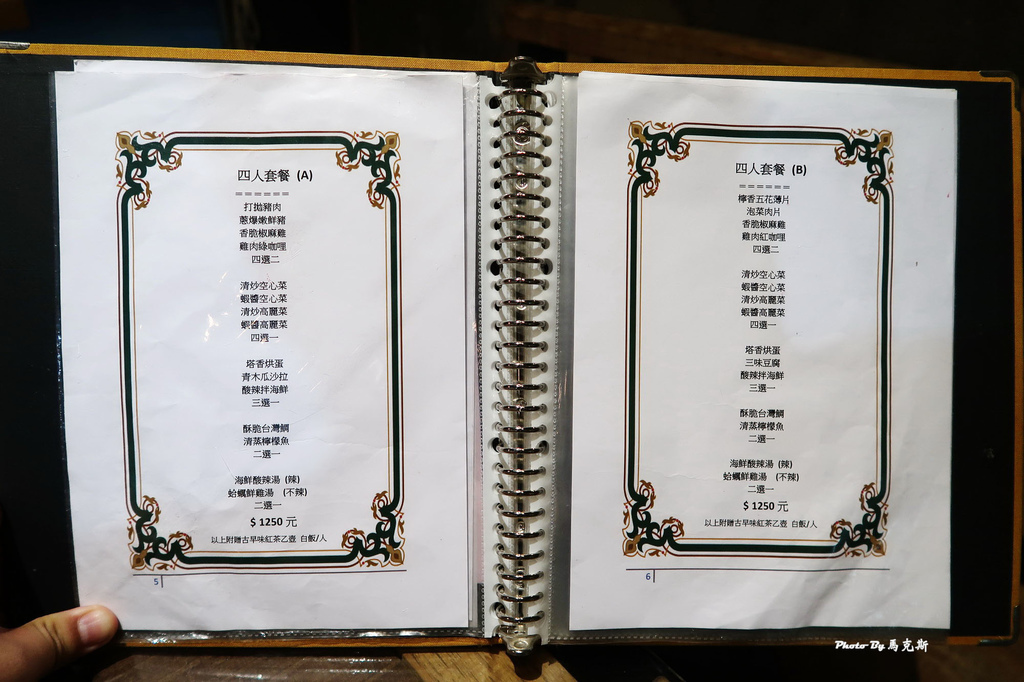 四人套餐 (A)
======
打拋豬肉
蔥爆嫩鮮豬
香脆椒麻雞
雞肉綠咖哩
四選二
清炒空心菜
蝦醬空心菜
清炒高麗菜
蝦醬高麗菜
四選一
塔香烘蛋
青木瓜沙拉
酸辣拌海鮮
三選一
酥脆台灣鯛
清蒸檸檬魚
二選一
海鮮酸辣湯 (辣)
蛤蠣鮮雞湯 (不辣)
二選一
$ 1250 元
以上附贈古早味紅茶乙壺 白飯/人
5
四人套餐 (B)
======
檸香五花薄片
泡菜肉片
香脆椒麻雞
雞肉紅咖哩
四選二
清炒空心菜
蝦醬空心菜
清炒高麗菜
蝦醬高麗菜
四選一
塔香烘蛋
三味豆腐
酸辣拌海鮮
三選一
酥脆台灣鯛
清蒸檸檬魚
二選一
海鮮酸辣湯 (辣)
蛤蠣鮮雞湯 (不辣)
二選一
$ 1250 元
以上附贈古早味紅茶乙壺 白飯/人
6
Photo By 馬克斯